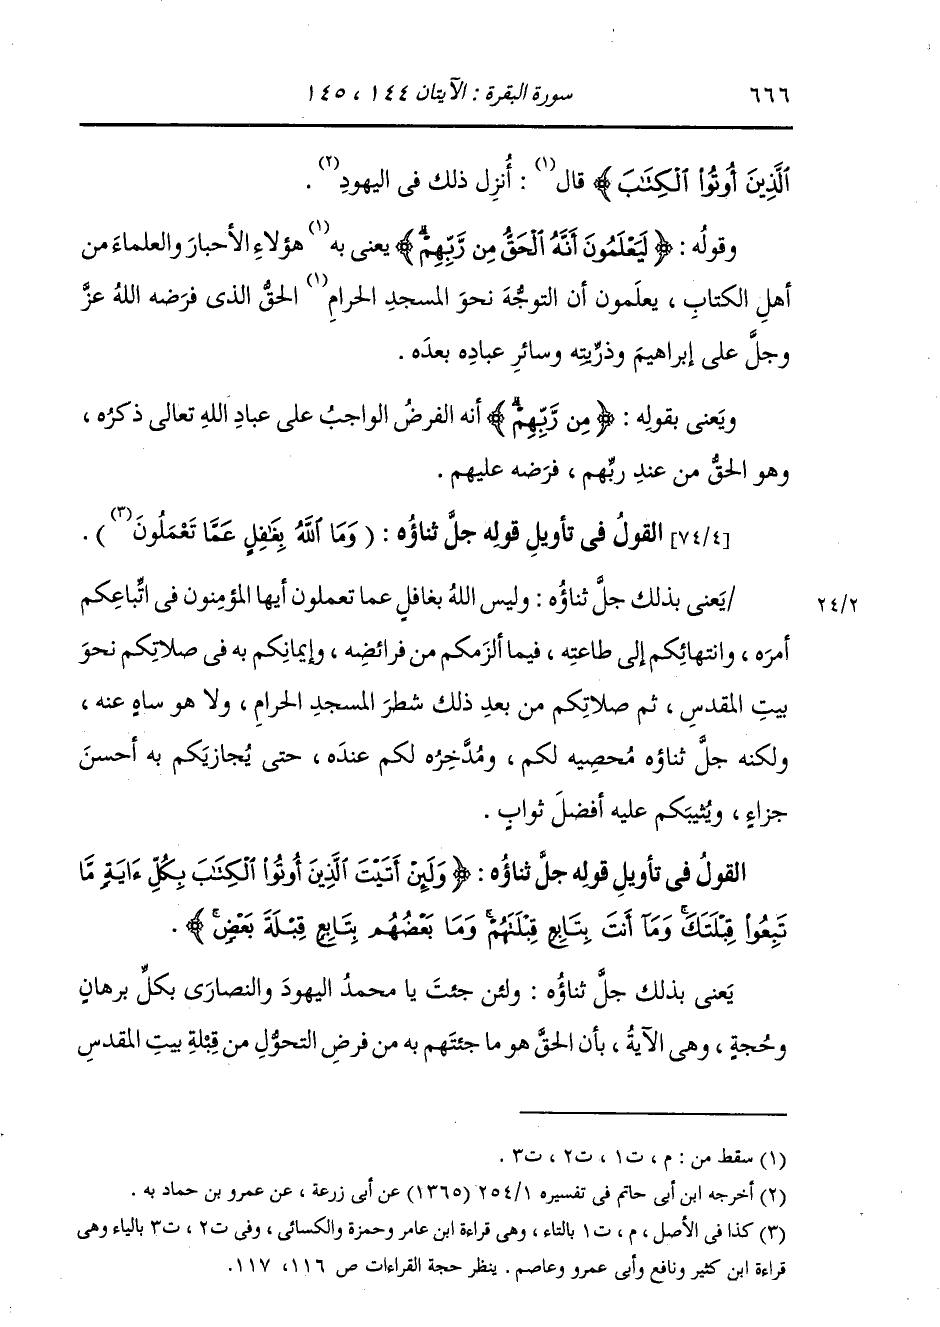 ٦٦٦ سورة البقرة : الآيتان ١٤٤ ، ١٤٥
ٱلَّذِينَ أُوتُوا۟ ٱلْكِتَٰبَ ﴾ قال(١) : أُنزِل ذلك فى اليهودِ(٢) .
وقولُه : ﴿ لَيَعْلَمُونَ أَنَّهُ ٱلْحَقُّ مِن رَّبِّهِمْۗ ﴾ يعنى به(١) هؤلاءِ الأحبارَ والعلماءَ من
أهلِ الكتابِ ، يعلَمون أن التوجُّهَ نحوَ المسجدِ الحرامِ(١) الحقُّ الذى فرَضه اللهُ عزَّ
وجلَّ على إبراهيمَ وذرِّيتِه وسائرِ عبادِه بعدَه .
ويَعنى بقولِه : ﴿ مِن رَّبِّهِمْۗ ﴾ أنه الفرضُ الواجبُ على عبادِ اللهِ تعالى ذكرُه ،
وهو الحقُّ من عندِ ربِّهم ، فرَضه عليهم .
[٧٤/٤] القولُ فى تأويلِ قولِه جلَّ ثناؤُه : ( وَمَا ٱللَّهُ بِغَٰفِلٍ عَمَّا تَعْمَلُونَ(٣) ) .
/يَعنى بذلك جلَّ ثناؤُه : وليس اللهُ بغافلٍ عما تعملون أيها المؤمنون فى اتِّباعِكم ٢٤/٢
أمرَه ، وانتهائِكم إلى طاعتِه ، فيما ألزَمكم من فرائضِه ، وإيمانِكم به فى صلاتِكم نحوَ
بيتِ المقدسِ ، ثم صلاتِكم من بعدِ ذلك شطرَ المسجدِ الحرامِ ، ولا هو ساهٍ عنه ،
ولكنه جلَّ ثناؤه مُحصِيه لكم ، ومُدَّخِرُه لكم عندَه ، حتى يُجازيَكم به أحسنَ
جزاءٍ ، ويُثيبَكم عليه أفضلَ ثوابٍ .
القولُ فى تأويلِ قولِه جلَّ ثناؤُه : ﴿ وَلَئِنْ أَتَيْتَ ٱلَّذِينَ أُوتُوا۟ ٱلْكِتَٰبَ بِكُلِّ ءَايَةٍ مَّا
تَبِعُوا۟ قِبْلَتَكَۚ وَمَآ أَنتَ بِتَابِعٍ قِبْلَتَهُمْۚ وَمَا بَعْضُهُم بِتَابِعٍ قِبْلَةَ بَعْضٍۚ ﴾ .
يَعنى بذلك جلَّ ثناؤُه : ولئن جئتَ يا محمدُ اليهودَ والنصارَى بكلِّ برهانٍ
وحُجةٍ ، وهى الآيةُ ، بأن الحقَّ هو ما جئتَهم به من فرضِ التحوُّلِ من قِبْلةِ بيتِ المقدسِ
(١) سقط من : م ، ت١ ، ت٢ ، ت٣ .
(٢) أخرجه ابن أبى حاتم فى تفسيره ٢٥٤/١ (١٣٦٥) عن أبى زرعة ، عن عمرو بن حماد به .
(٣) كذا فى الأصل ، م ، ت١ بالتاء ، وهى قراءة ابن عامر وحمزة والكسائى ، وفى ت٢ ، ت٣ بالياء وهى
قراءة ابن كثير ونافع وأبى عمرو وعاصم . ينظر حجة القراءات ص ١١٦، ١١٧.